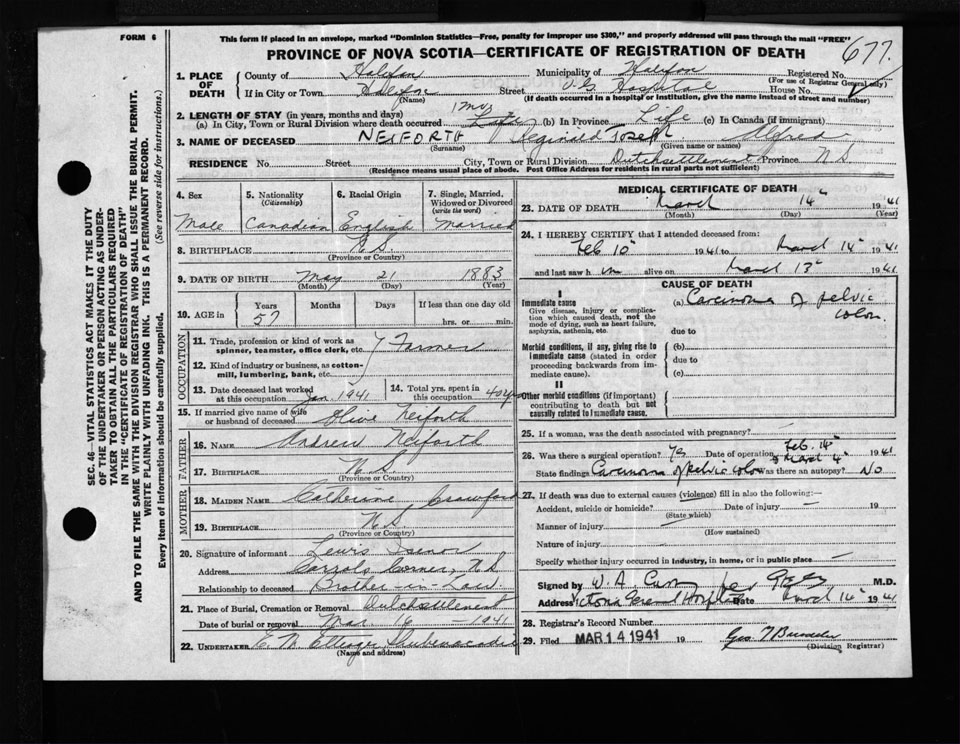 FORM 6
This form if placed in an envelope, marked "Dominion Statistics—Free, penalty for improper use $300," and properly addressed will pass through the mail "FREE"
PROVINCE OF NOVA SCOTIA—CERTIFICATE OF REGISTRATION OF DEATH
677.
SEC. 46—VITAL STATISTICS ACT MAKES IT THE DUTY
OF THE UNDERTAKER OR PERSON ACTING AS UNDER-
TAKER TO OBTAIN ALL THE PARTICULARS REQUIRED
IN THE "CERTIFICATE OF REGISTRATION OF DEATH"
AND TO FILE THE SAME WITH THE DIVISION REGISTRAR WHO SHALL ISSUE THE BURIAL PERMIT.
WRITE PLAINLY WITH UNFADING INK. THIS IS A PERMANENT RECORD.
Every item of information should be carefully supplied. (See reverse side for instructions.)
1. PLACE OF DEATH County of Halifax Municipality of Halifax Registered No.
(For use of Registrar General only)
If in City or Town Halifax Street V.G. Hospital House No.
(Name) (If death occurred in a hospital or institution, give the name instead of street and number)
2. LENGTH OF STAY (in years, months and days) 1 mo
(a) In City, Town or Rural Division where death occurred (b) In Province Life (c) In Canada (if immigrant)
3. NAME OF DECEASED NEIFORTH Reginald Joseph Alfred
(Surname) (Given name or names)
RESIDENCE No. Street City, Town or Rural Division Dutchsettlement Province N S
(Residence means usual place of abode. Post Office Address for residents in rural parts not sufficient)
4. Sex Male
5. Nationality (Citizenship) Canadian
6. Racial Origin English
7. Single, Married, Widowed or Divorced (write the word) Married
8. BIRTHPLACE N.S.
(Province or Country)
9. DATE OF BIRTH May 21 1883
(Month) (Day) (Year)
10. AGE in Years 57 Months Days If less than one day old hrs. or min.
OCCUPATION
11. Trade, profession or kind of work as spinner, teamster, office clerk, etc. Farmer
12. Kind of industry or business, as cotton-mill, lumbering, bank, etc.
13. Date deceased last worked at this occupation Jan. 1941
14. Total yrs. spent in this occupation 40 yrs
15. If married give name of wife or husband of deceased Olive Neiforth
FATHER
16. NAME Andrew Neiforth
17. BIRTHPLACE N.S.
(Province or Country)
MOTHER
18. MAIDEN NAME Catherine Crawford
19. BIRTHPLACE N.S.
(Province or Country)
20. Signature of informant Lewis Isenor
Address Carrols Corner, N.S
Relationship to deceased Brother-in-Law
21. Place of Burial, Cremation or Removal Dutchsettlement
Date of burial or removal Mar 16 - 1941
22. UNDERTAKER E. Shubenacadie
(Name and address)
MEDICAL CERTIFICATE OF DEATH
23. DATE OF DEATH March 14 1941
(Month) (Day) (Year)
24. I HEREBY CERTIFY that I attended deceased from:
Feb 10 1941 to March 14 1941
and last saw him alive on March 13 1941
CAUSE OF DEATH
I
Immediate cause (a) Carcinoma of pelvic colon.
Give disease, injury or complication which caused death, not the mode of dying, such as heart failure, asphyxia, asthenia, etc.
due to
Morbid conditions, if any, giving rise to immediate cause (stated in order proceeding backwards from immediate cause).
(b)
due to
(c)
II
Other morbid conditions (if important) contributing to death but not causally related to immediate cause.
25. If a woman, was the death associated with pregnancy?
26. Was there a surgical operation? yes Date of operation Feb. 14 & March 4 1941
State findings Carcinoma of pelvic colon Was there an autopsy? No
27. If death was due to external causes (violence) fill in also the following:—
Accident, suicide or homicide? Date of injury 19
(State which)
Manner of injury
(How sustained)
Nature of injury
Specify whether injury occurred in industry, in home, or in public place
Signed by W. A. M.D.
Address Victoria General Hospital Date March 14 1941
28. Registrar's Record Number
29. Filed MAR 14 1941 19 Geo
(Division Registrar)